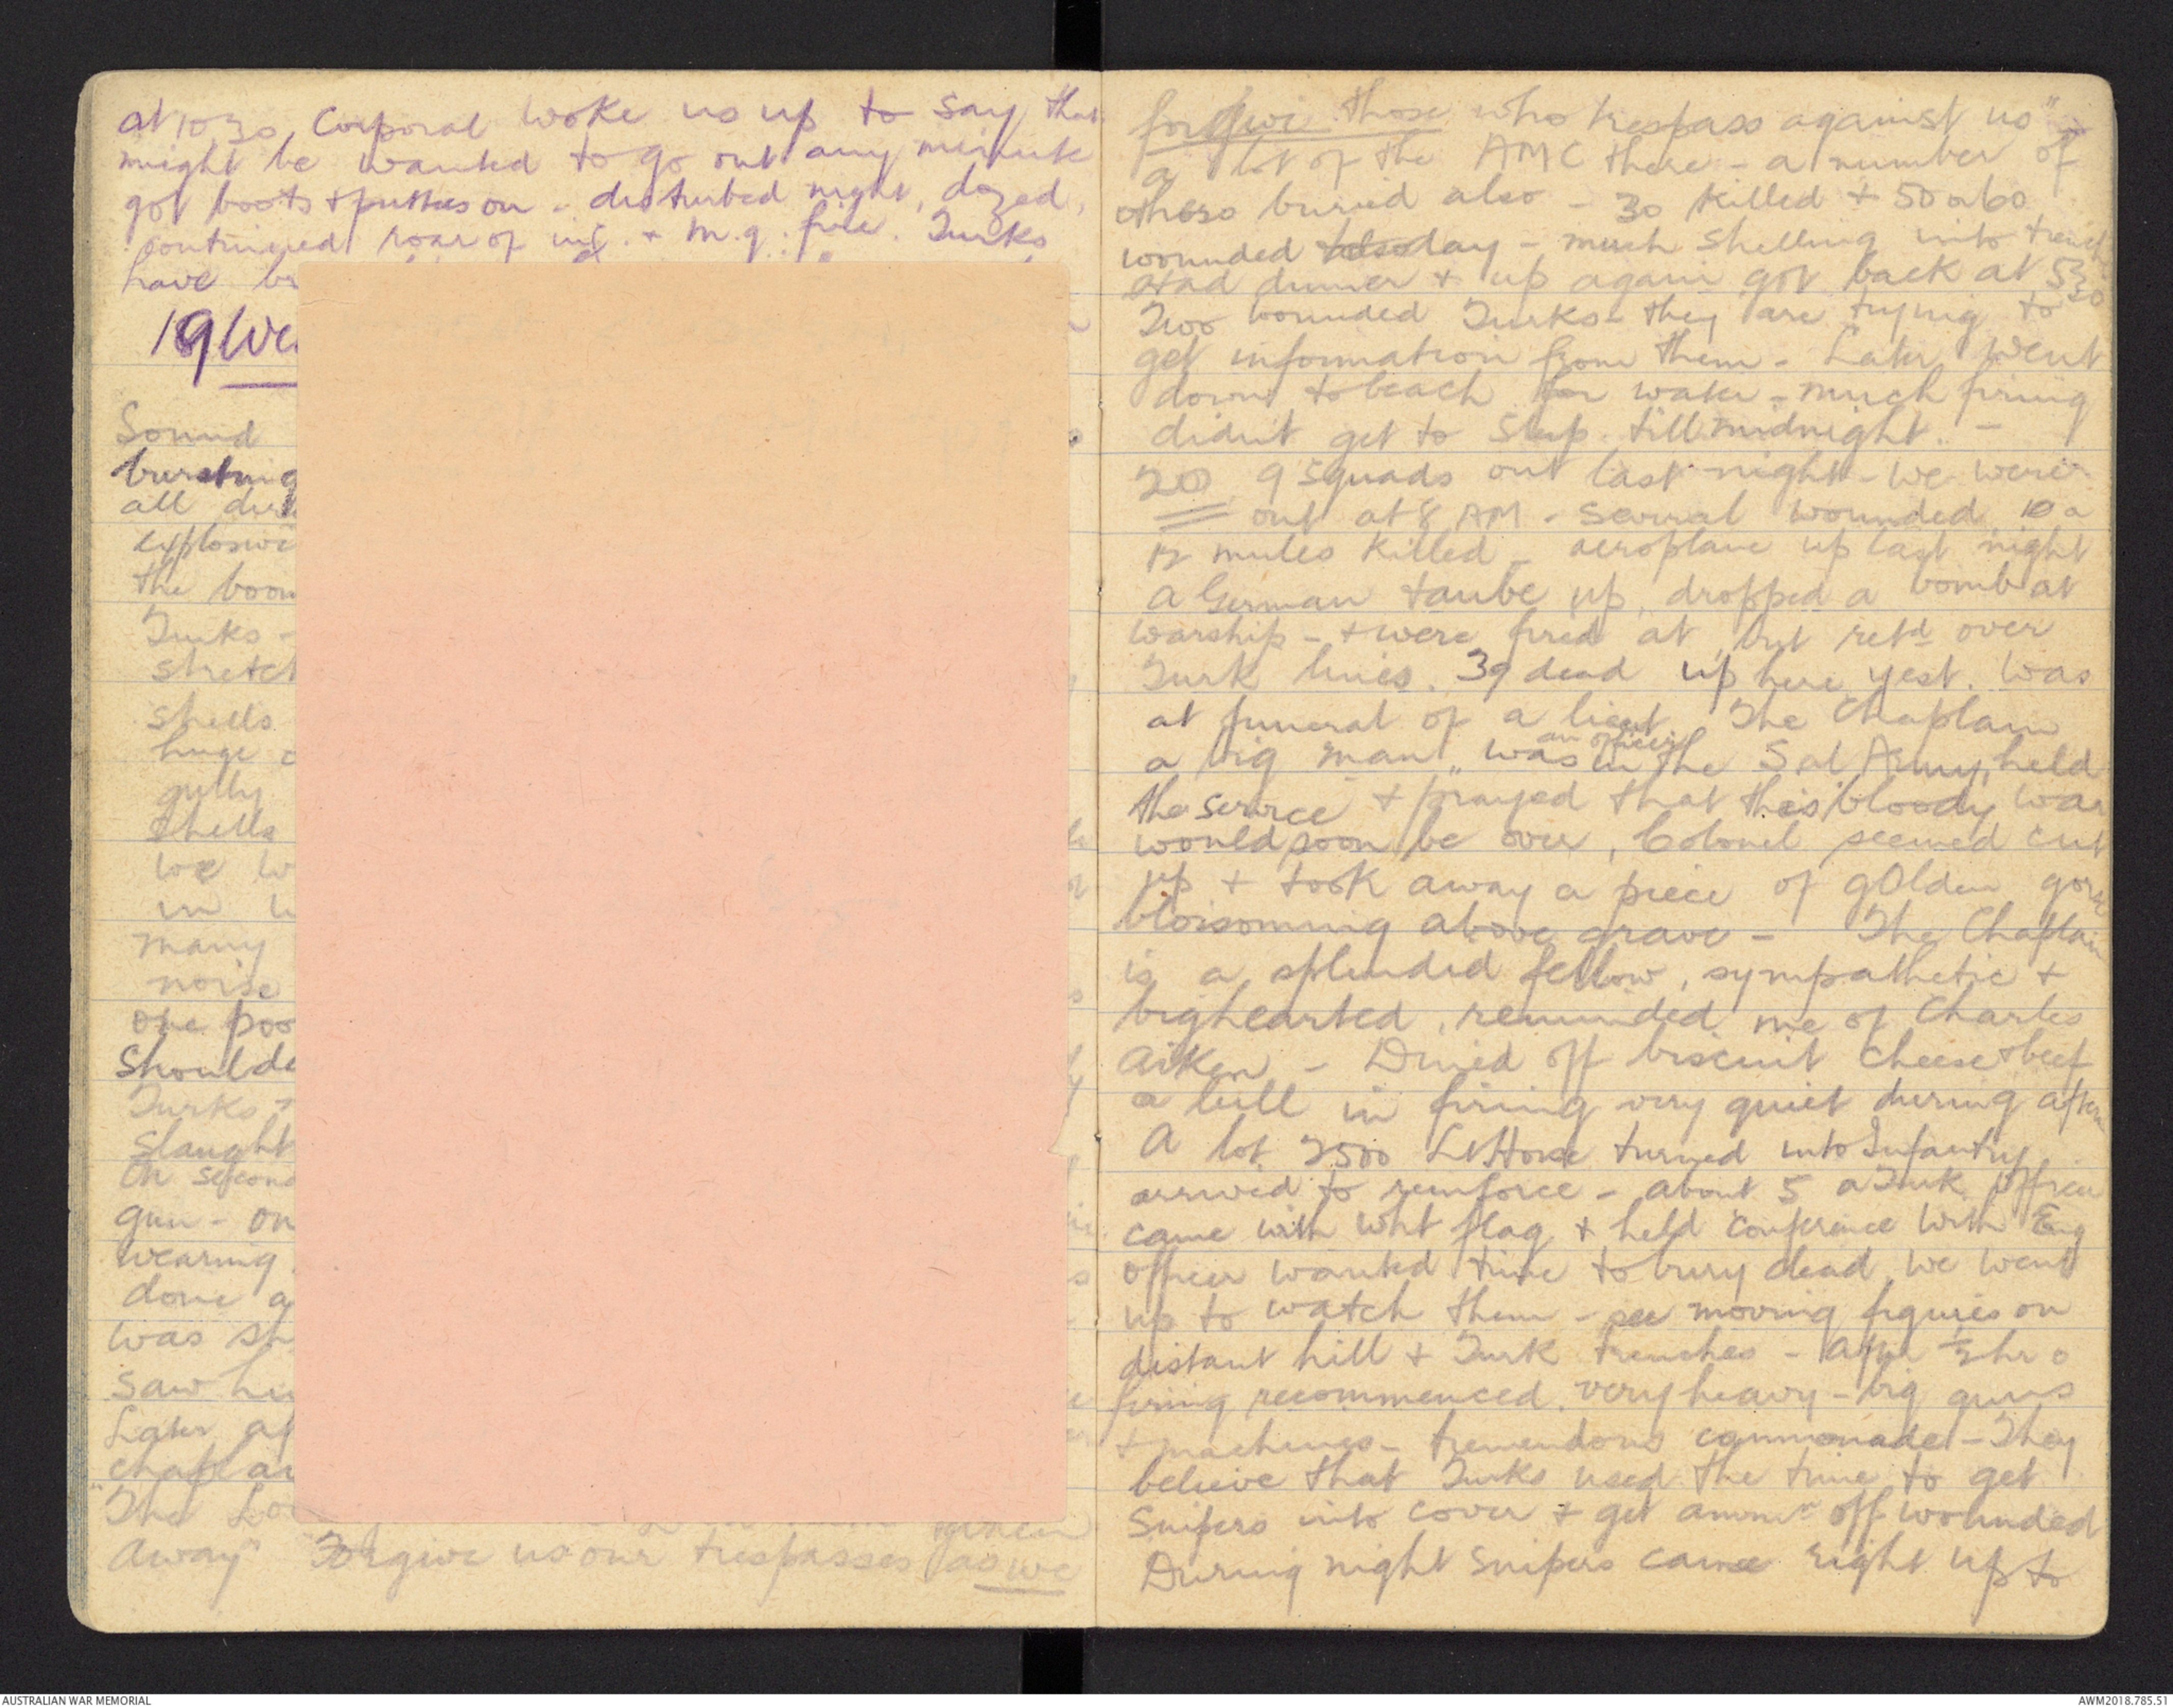 at 10 30, Corporal woke us up to say that
might be wanted to go out any minute
got boots & puttees on - disturbed night, dozed,
continued roar of & m.g. fire. Turks
have
19 We
Sound
bursting
all
explosive
the boom
Turks -
stretch
shells
huge
gully
shells
we w
in
many
noise
one poo
Shoulde
Turks
Slaught
On second
gun - on
wearing
done a
was sh
saw hi
Later
chaplai
"The Lo
away" Forgive us our trespasses as we
forgive those who trespass against us"
a lot of the AMC there - a number of
others buried also - 30 killed & 50 or 60
wounded day - much shelling into trench
Had dinner & up again got back at 530
Two wounded Turks - they are trying to
get information from them - Later went
down to beach for water - much firing
didn't get to sleep till midnight. -
20 9 squads out last night - we were
out at 8 AM - several wounded 10 or
12 mules killed - aeroplane up last night
A German taube up, dropped a bomb at
warship - & were fired at, but retd over
Turk lines. 39 dead up here yest. Was
at funeral of a lieut The Chaplain
a big man, was an officer in the Sal Army, held
the service & prayed that this bloody war
would soon be over, Colonel seemed cut
up & took away a piece of golden gorse
bloisomming above grave - The Chaplain
is a splendid fellow, sympathetic &
bighearted, reminded me of Charles
Aiken - Dined off biscuit cheese & beef
a lull in firing very quiet during aftern
A lot 2500 Lt Horse turned into Infantry
arrived to reinforce - about 5 a Turk officer
came with wht flag & held conference with Eng
officer wanted time to bury dead, we went
up to watch them - see moving figures on
distant hill & Turk trenches - After
firing recommenced, very heavy - big guns
& machines - tremendous cannonade - They
believe that Turks used the time to get
Snipers into cover & get ammn off wounded
During night snipers came right up to
AUSTRALIAN WAR MEMORIAL
AWM2018.785.51